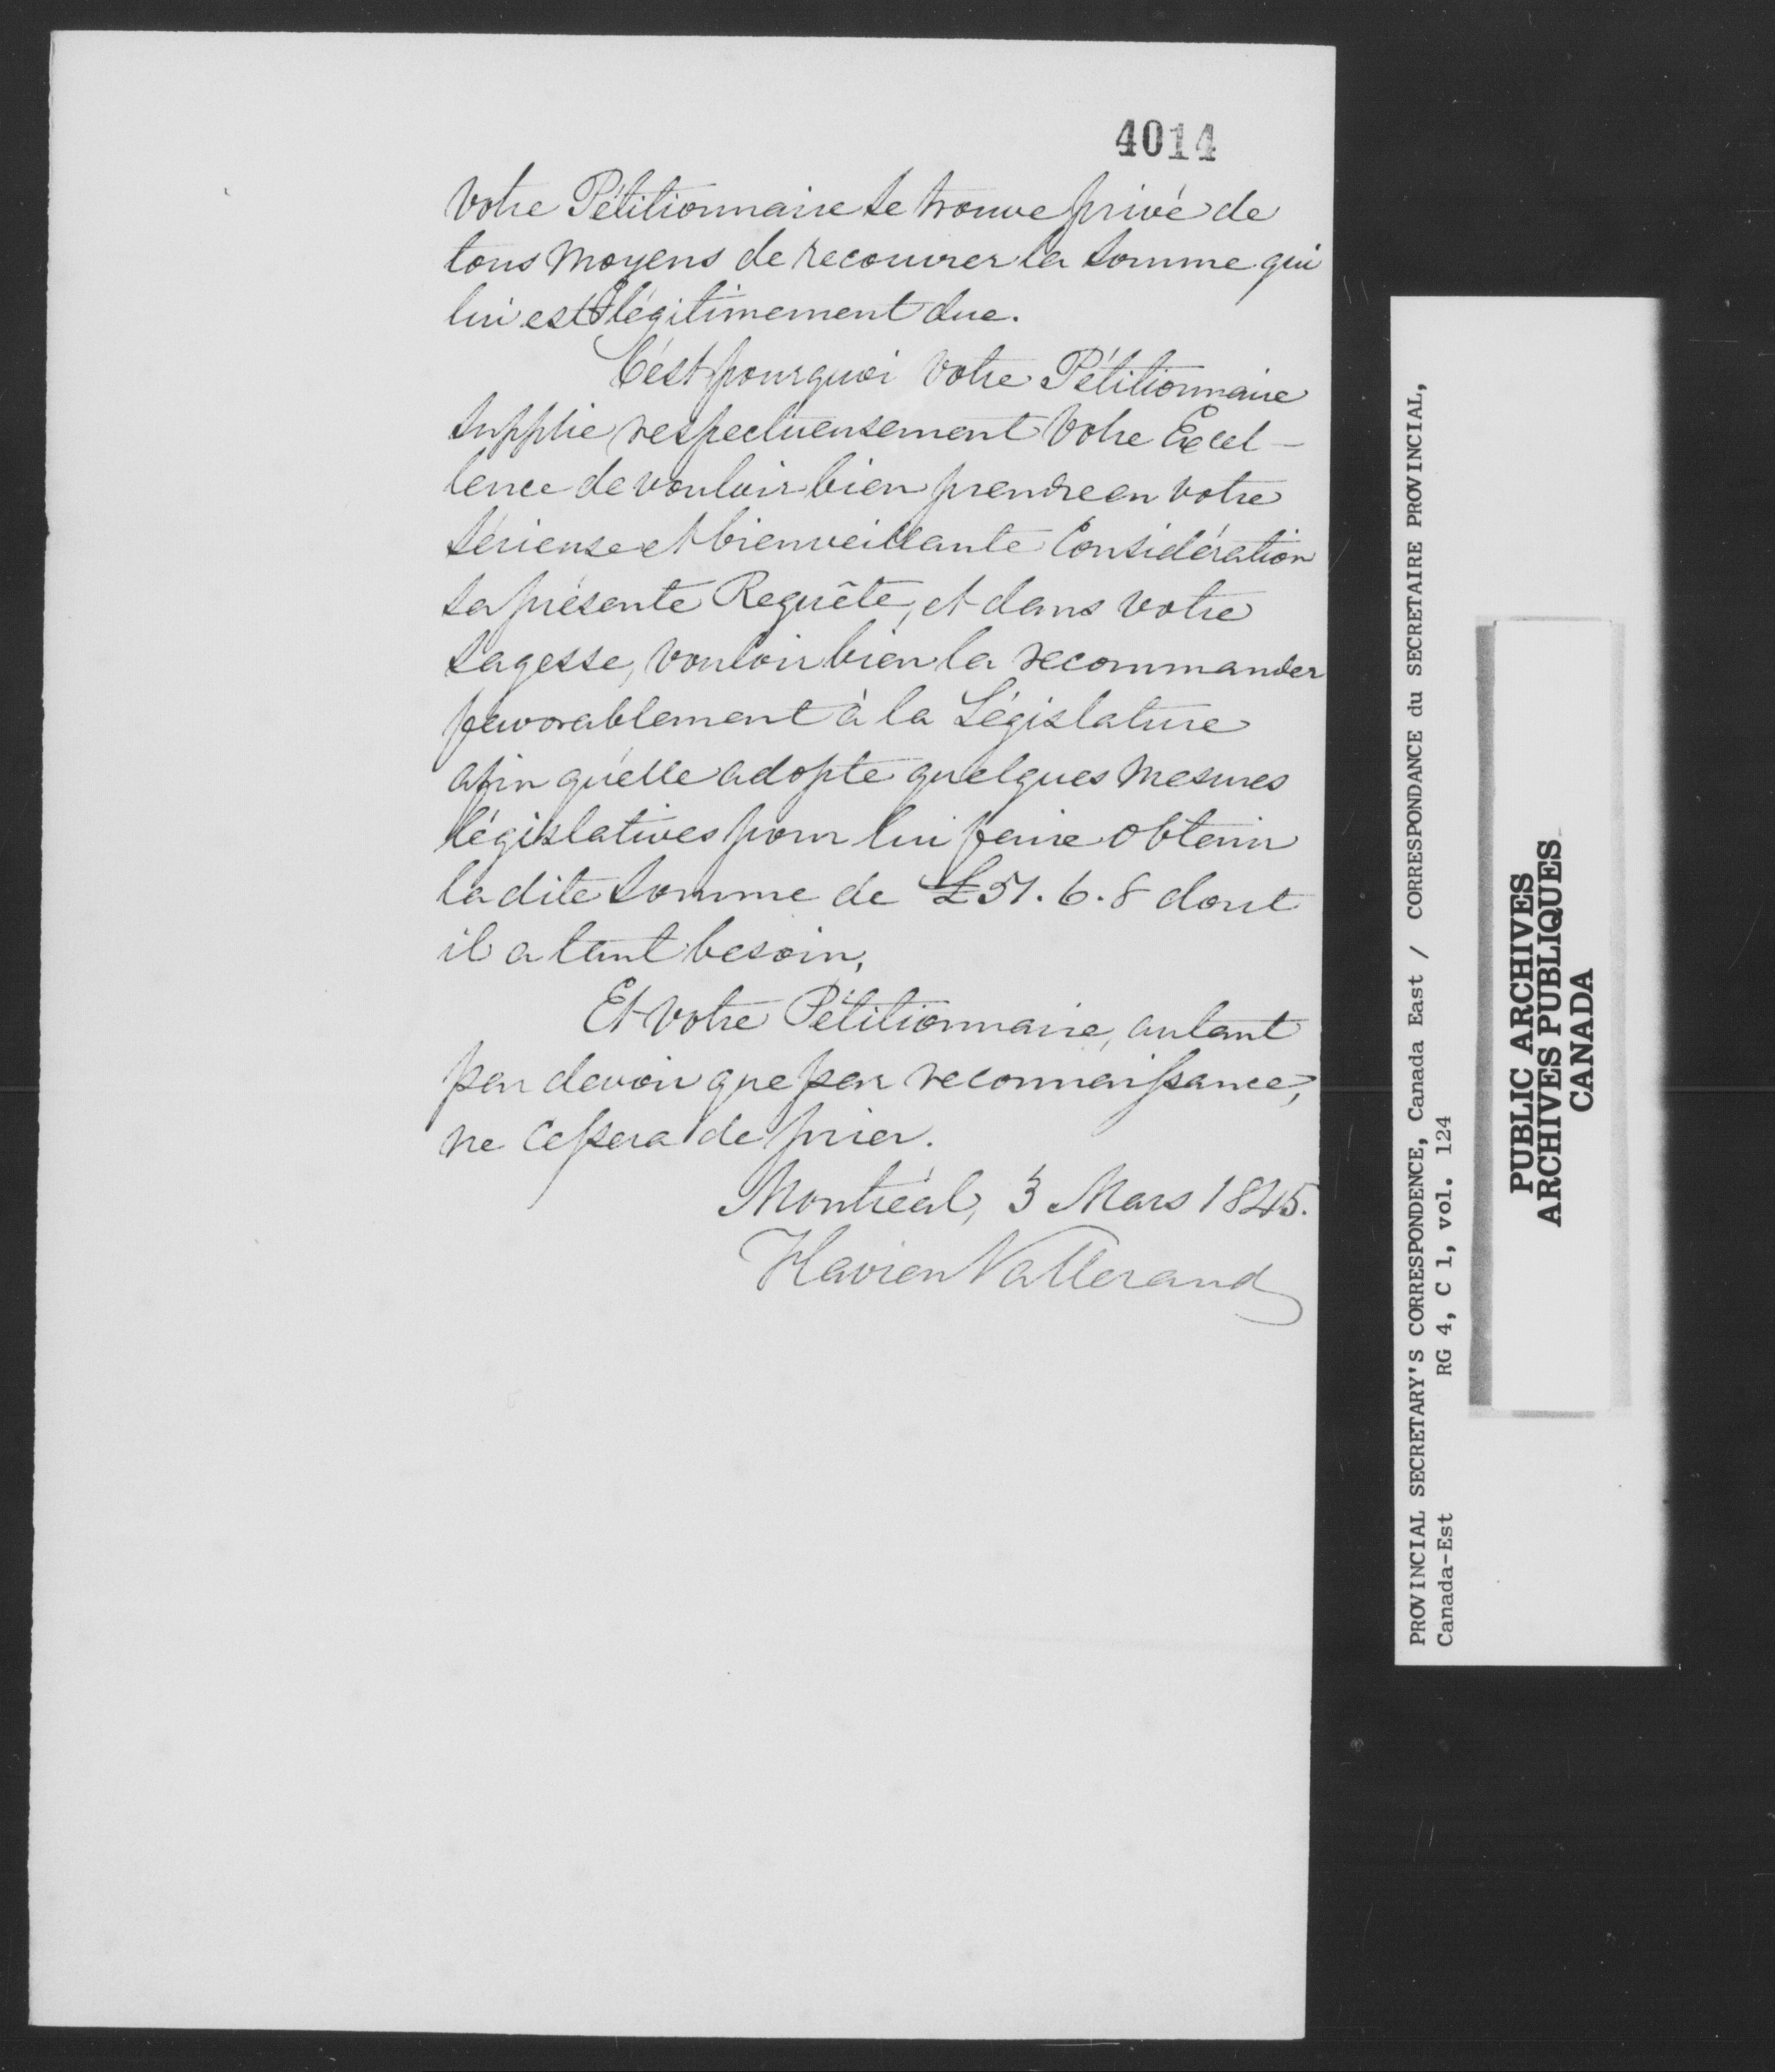 4014
Votre Pétitionnaire se trouve privé de
tous moyens de recouvrer la somme qui
lui est légitimement due.
C'est pourquoi Votre Pétitionnaire
supplie respectueusement Votre Excel-
lence de vouloir bien prendre en votre
sérieuse et bienveillante Considération
sa présente Requête, et dans votre
sagesse, vouloir bien la recommander
favorablement à la Législature
afin qu'elle adopte quelques mesures
législatives pour lui faire obtenir
la dite somme de £51.6.8 dont
il a tant besoin,
Et votre Pétitionnaire, autant
par devoir que par reconnaissance,
ne cessera de prier.
Montréal, 3 Mars 1845.
Flavien Vallerand
PROVINCIAL SECRETARY'S CORRESPONDENCE, Canada East / CORRESPONDANCE du SECRETAIRE PROVINCIAL,
Canada-Est RG 4, C 1, vol. 124
PUBLIC ARCHIVES
ARCHIVES PUBLIQUES
CANADA